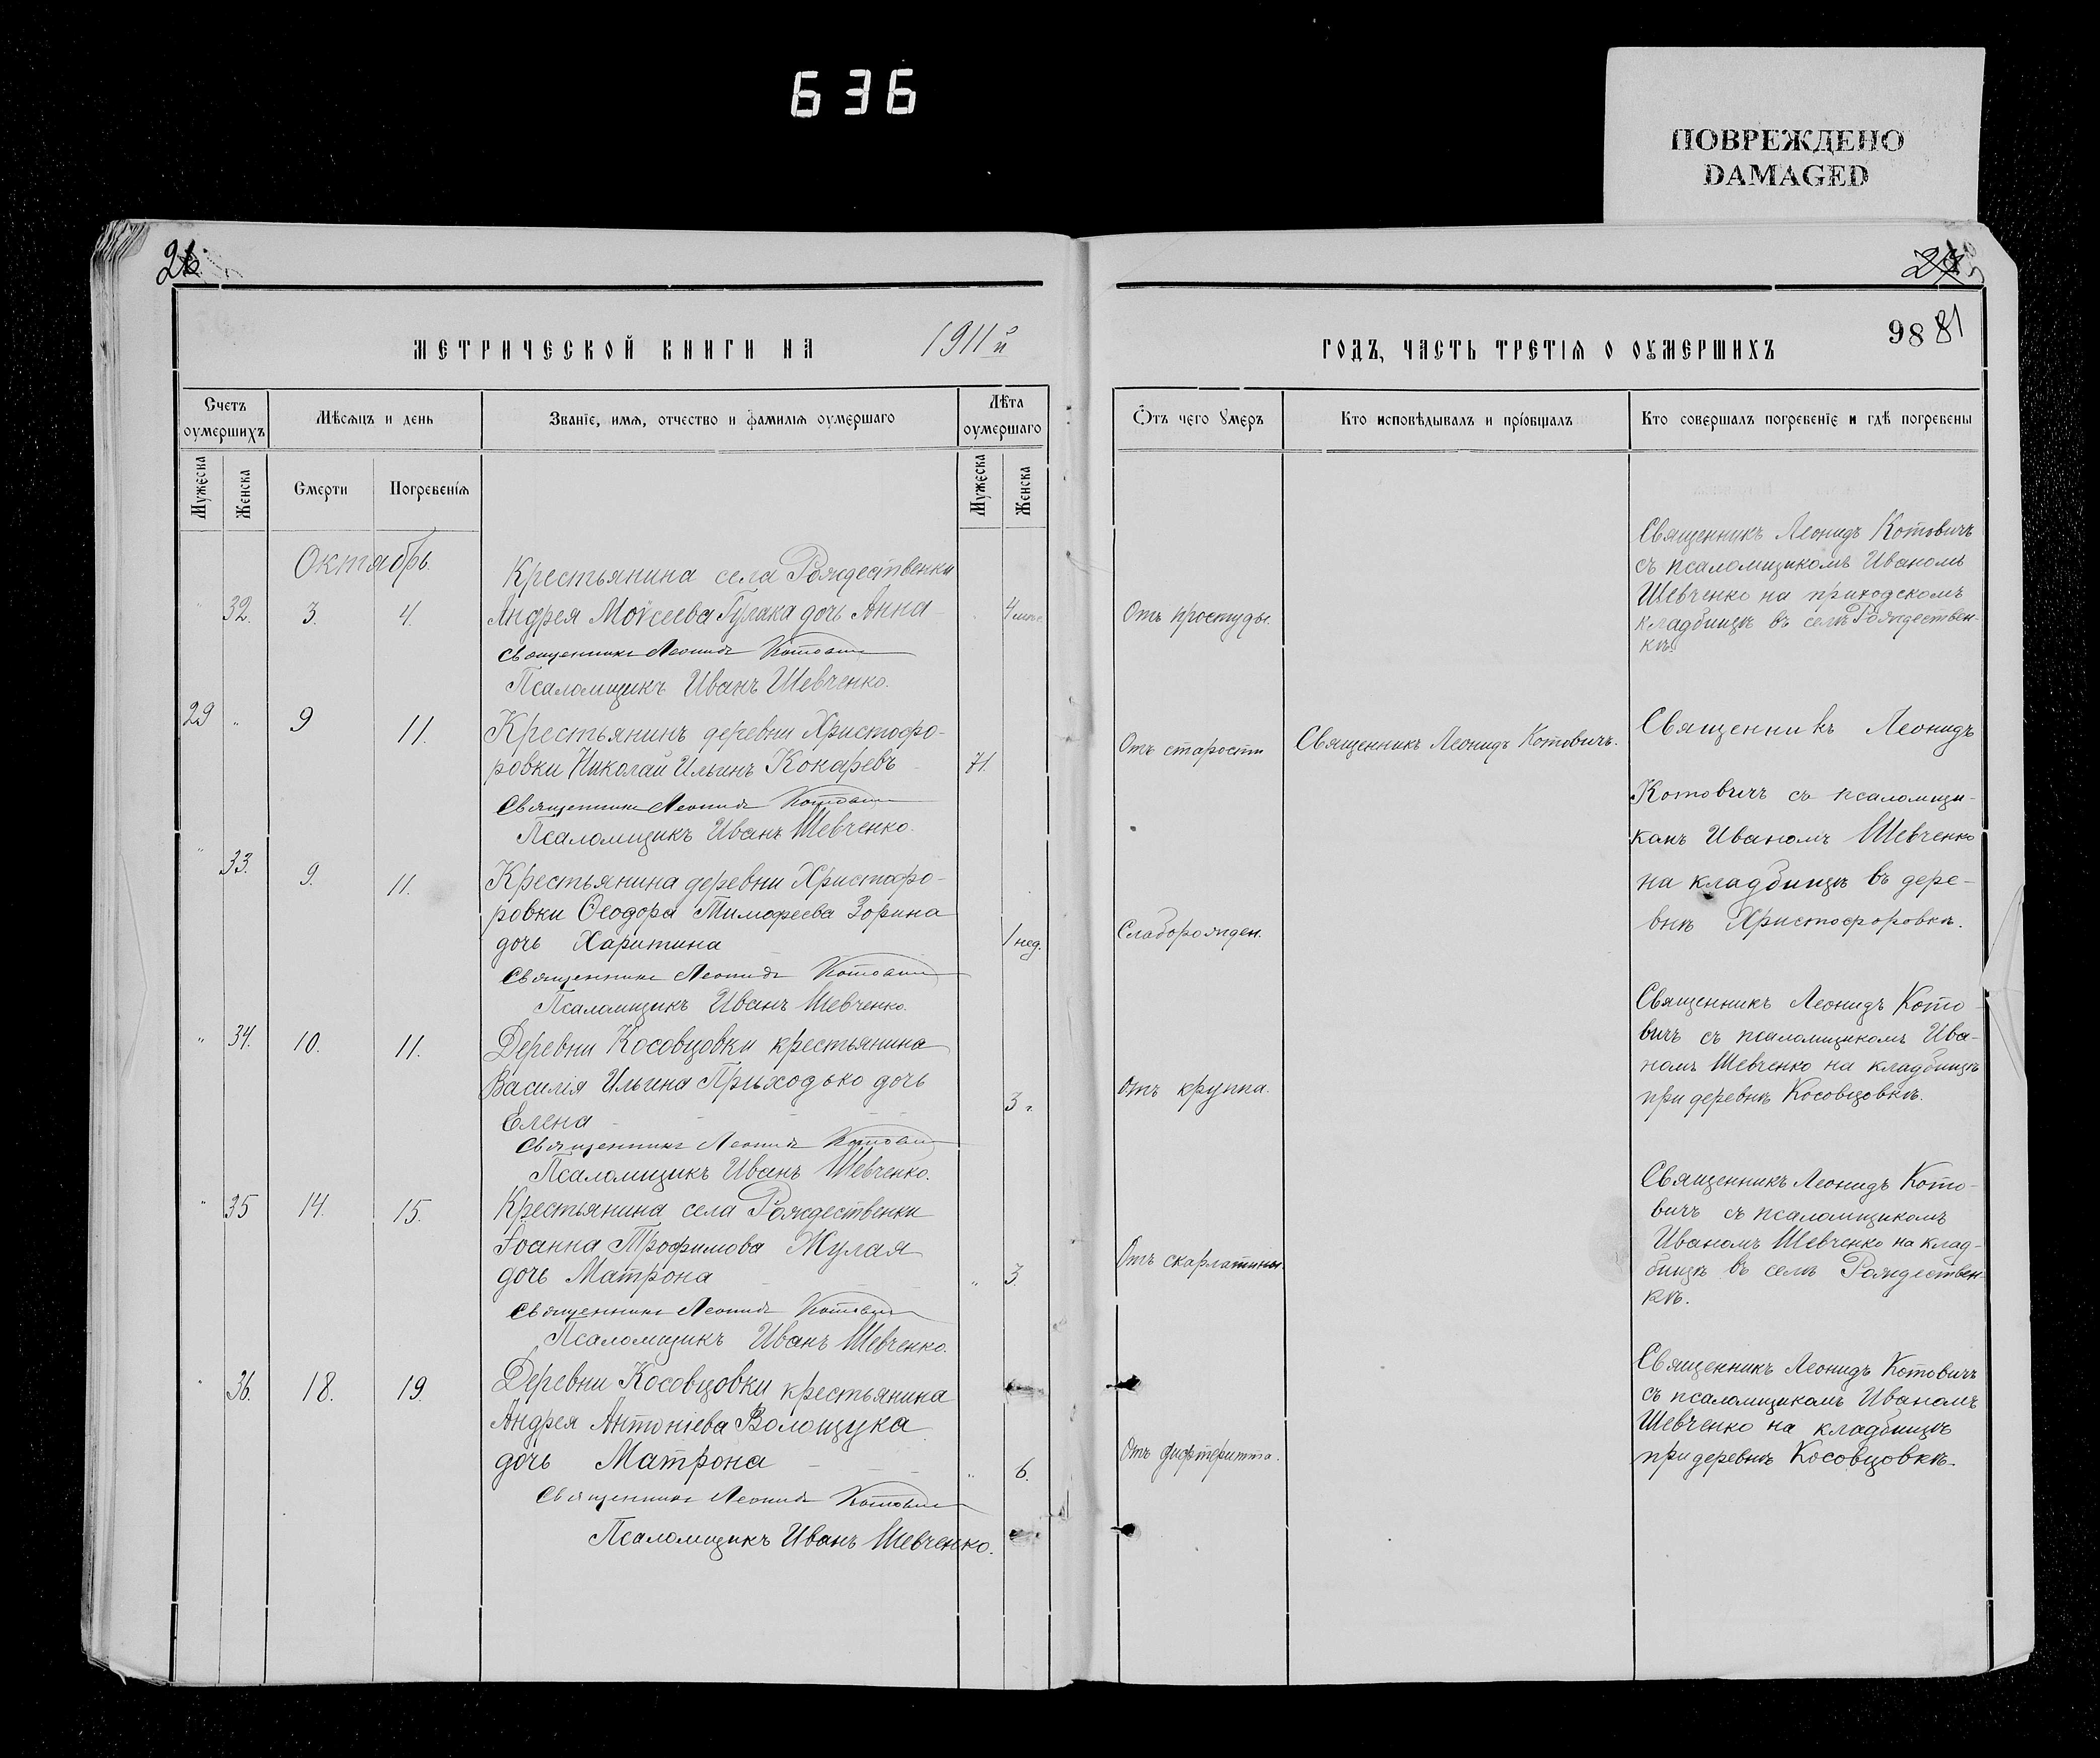 636
ПОВРЕЖДЕНО
DAMAGED
МЕТРИЧЕСКОЙ КНИГИ НА 1911й
ГОДЪ, ЧАСТЬ ТРЕТІЯ О ОУМЕРШИХЪ
98 81
Счетъ оумершихъ
Мѣсяцъ и день
Званіе, имя, отчество и фамилія оумершаго
Лѣта оумершаго
Отъ чего умеръ
Кто исповѣдывалъ и пріобщалъ
Кто совершалъ погребеніе и гдѣ погребены
Мужеска
Женска
Смерти
Погребенія
Мужеска
Женска
Октябрь
" 32. 3. 4.
Крестьянина села Рождественки
Андрея Моѵсеева Гулака дочь Анна
Священникъ Леонидъ Котовичъ
Псаломщикъ Иванъ Шевченко.
Отъ простуды.
Священникъ Леонидъ Котовичъ
съ псаломщикомъ Иваномъ
Шевченко на приходскомъ
кладбищѣ въ селѣ Рождествен-
кѣ.
29 " 9 11.
Крестьянинъ деревни Христофо-
ровки Николай Ильинъ Кокаревъ
71.
Священникъ Леонидъ Котовичъ
Псаломщикъ Иванъ Шевченко.
Отъ старости
Священникъ Леонидъ Котовичъ.
Священникъ Леонидъ
Котовичъ съ псаломщи-
комъ Иваномъ Шевченко
на кладбищѣ въ дере-
внѣ Христофоровкѣ.
" 33. 9. 11.
Крестьянина деревни Христофо-
ровки Ѳеодора Тимофеева Зорина
дочь Харитина
1 нед.
Священникъ Леонидъ Котовичъ
Псаломщикъ Иванъ Шевченко.
Слаборожден.
" 34. 10. 11.
Деревни Косовцовки крестьянина
Василія Ильина Приходько дочь
Елена
3 г.
Священникъ Леонидъ Котовичъ
Псаломщикъ Иванъ Шевченко.
Отъ круппа.
Священникъ Леонидъ Кото-
вичъ съ псаломщикомъ Ива-
номъ Шевченко на кладбищѣ
при деревнѣ Косовцовкѣ.
" 35 14. 15.
Крестьянина села Рождественки
Іоанна Трофимова Жулая
дочь Матрона
" 3.
Священникъ Леонидъ Котовичъ
Псаломщикъ Иванъ Шевченко.
Отъ скарлатины.
Священникъ Леонидъ Кото-
вичъ съ псаломщикомъ
Иваномъ Шевченко на клад-
бищѣ въ селѣ Рождествен-
кѣ.
" 36. 18. 19.
Деревни Косовцовки крестьянина
Андрея Антоніева Волощука
дочь Матрона
" 6.
Священникъ Леонидъ Котовичъ
Псаломщикъ Иванъ Шевченко.
Отъ дифтерита.
Священникъ Леонидъ Котовичъ
съ псаломщикомъ Иваномъ
Шевченко на кладбищѣ
при деревнѣ Косовцовкѣ.